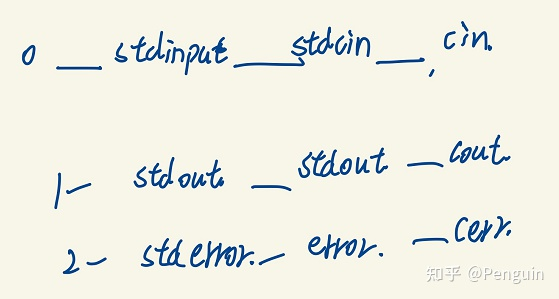 0 — stdinput — stdcin — cin.
1 — stdout. — stdout — cout.
2 — stderror. — error. — cerr.
知乎 @Penguin